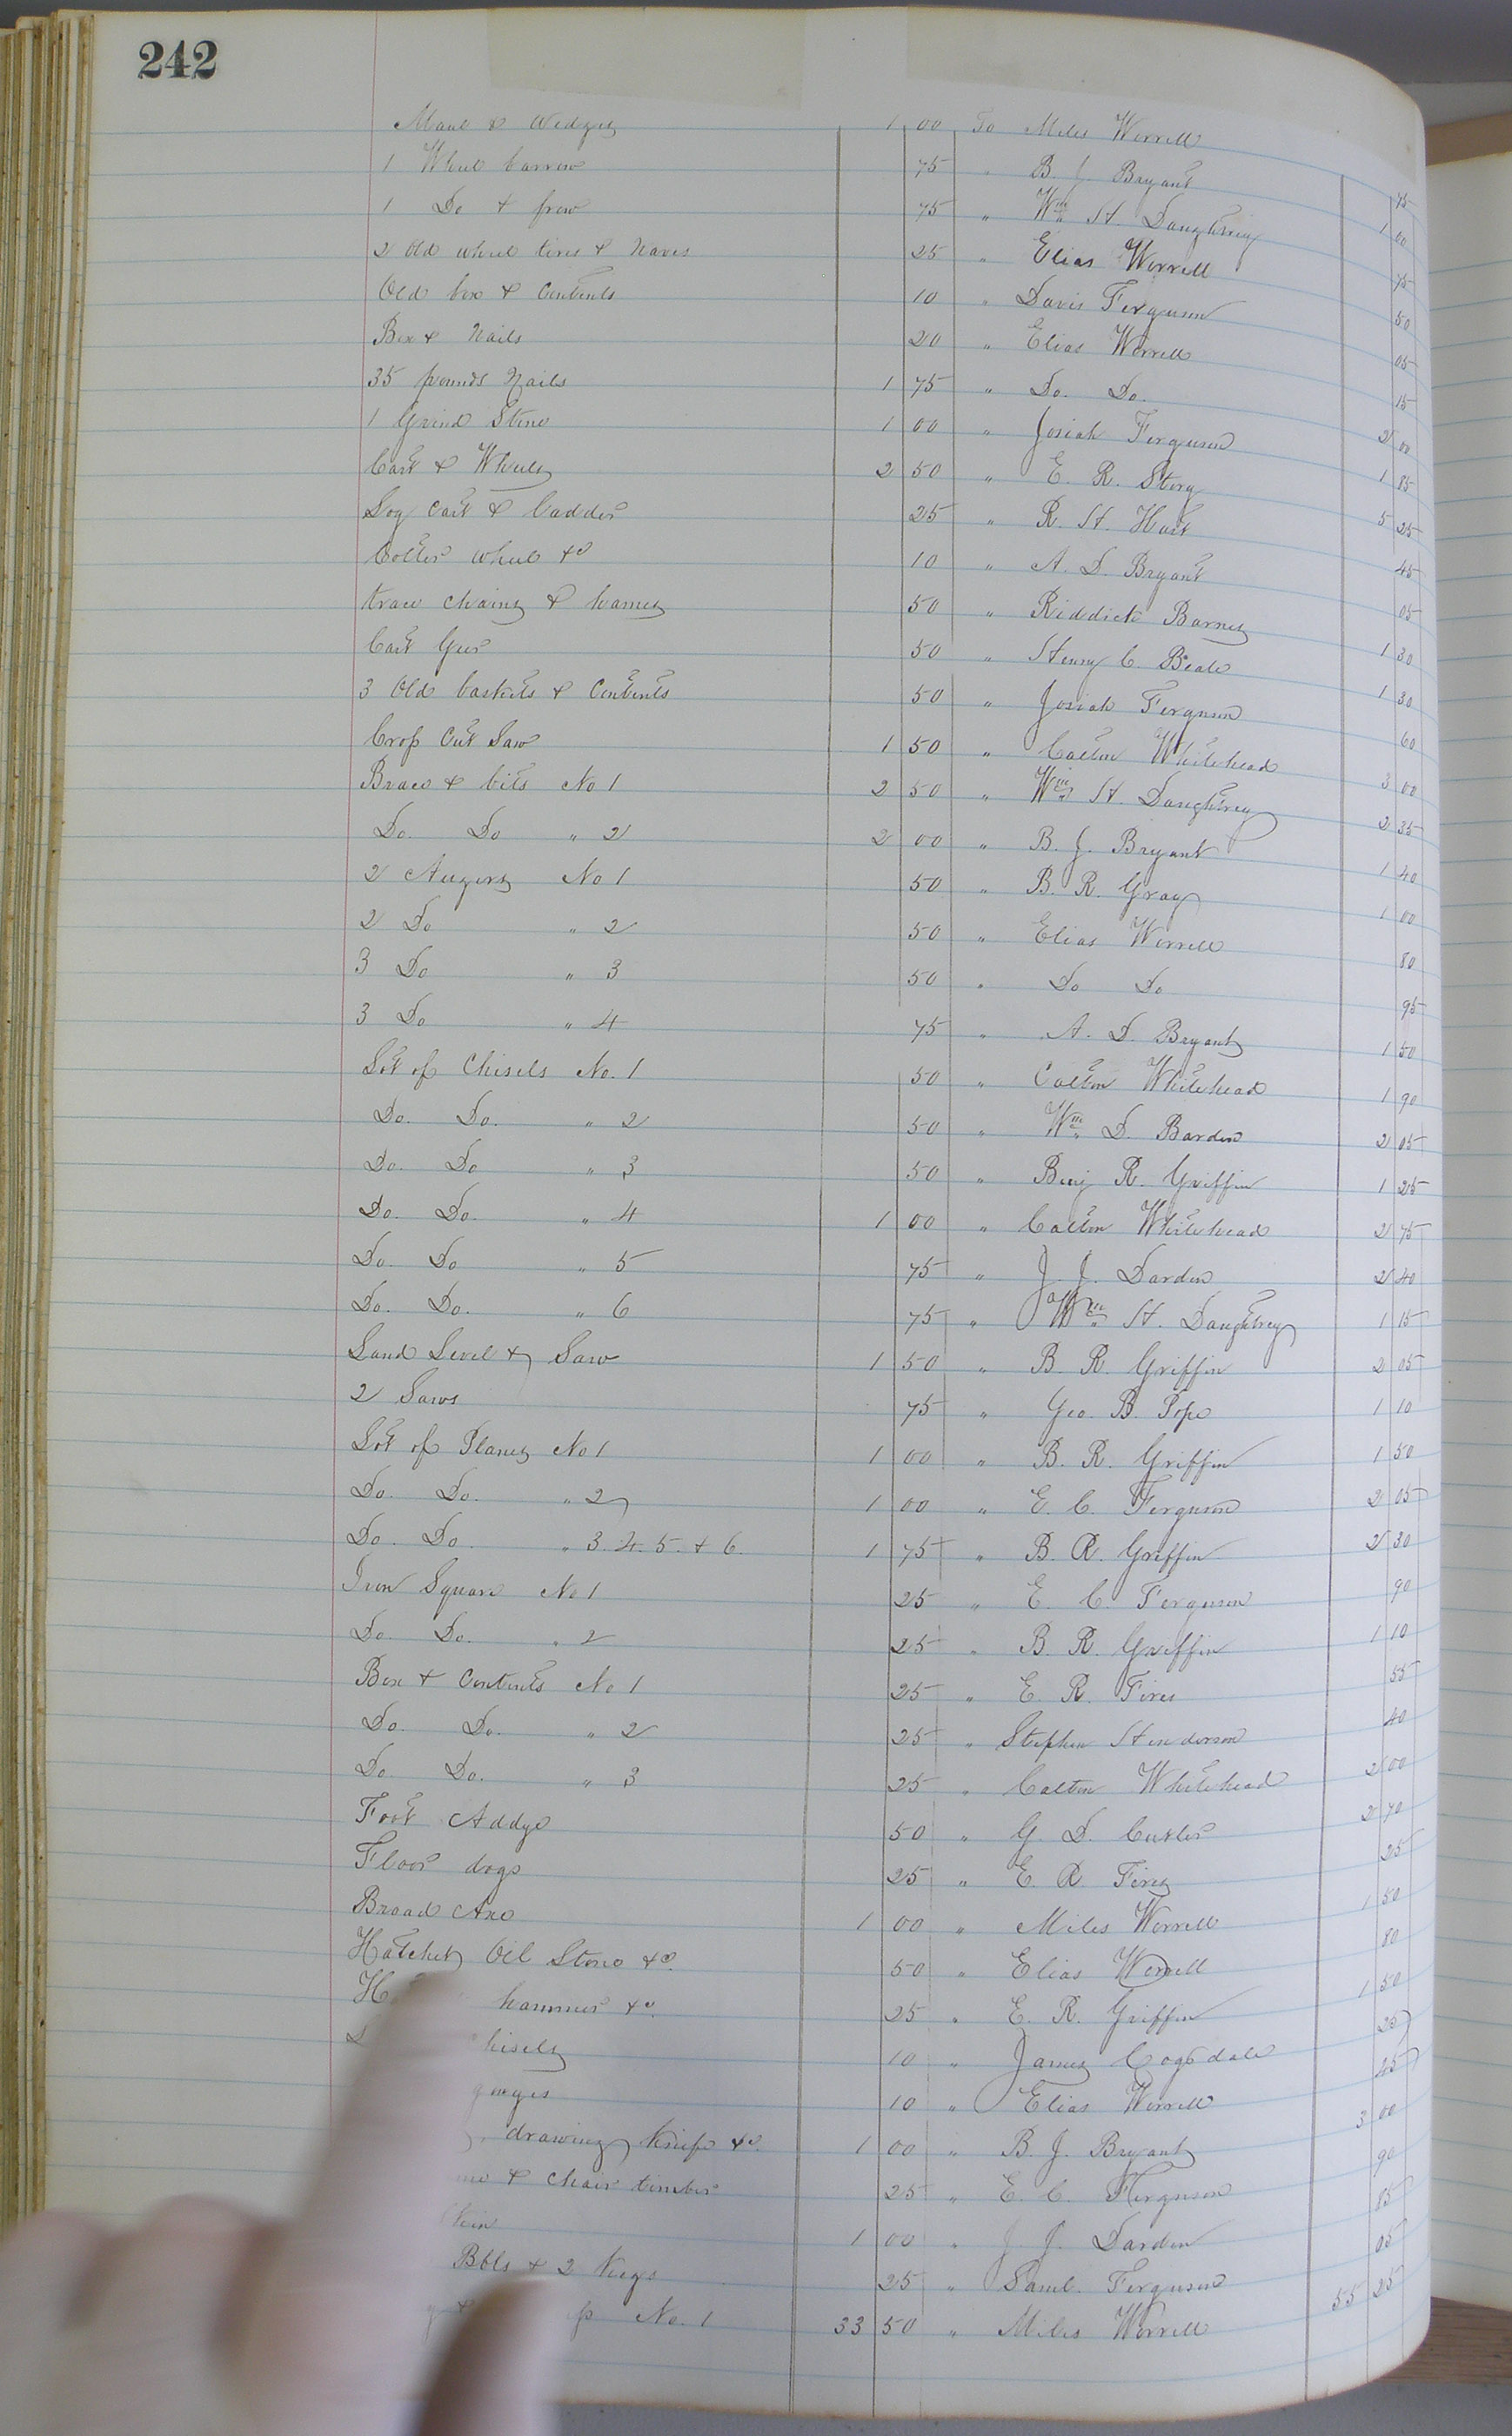 242
Maul & Wedges 1 00 To Miles Worrell 75
1 Wheel barrow 75 " B. J. Bryant 1 00
1 Do & frow 75 " Wm H. Daughtrey 75
2 Old wheel tires & Naves 25 " Elias Worrell 50
Old box & Contents 10 " Davis Ferguson 05
Box & Nails 20 " Elias Worrell 15
35 pounds Nails 1 75 " Do. Do. 2 00
1 Grind Stone 1 00 " Josiah Ferguson 1 85
Cart & Wheels 2 50 " E. R. Story 5 25
Log Cart & Ladder 25 " R. H. Hart 45
Wheel &c 10 " A. D. Bryant 05
trace chains & hames 50 " Riddick Barnes 1 30
Cart Geer 50 " Henry C. Beale 1 30
3 Old baskets & Contents 50 " Josiah Ferguson 60
Crop Cut Saw 1 50 " Colton Whitehead 3 00
Brace & bits No 1 2 50 " Wm H. Daughtrey 2 35
Do. Do " 2 2 00 " B. J. Bryant 1 40
2 Augers No 1 50 " B. R. Gray 1 00
2 Do " 2 50 " Elias Worrell 80
3 Do " 3 50 " Do Do 95
3 Do " 4 75 " A. D. Bryant 1 50
Lot of Chisels No. 1 50 " Colton Whitehead 1 90
Do. Do. " 2 50 " Wm D. Barden 2 05
Do. Do " 3 50 " Benj R. Griffin 1 25
Do. Do. " 4 1 00 " Colton Whitehead 2 75
Do. Do " 5 75 " J. J. Darden 2 40
Do. Do. " 6 75 " Wm H. Daughtrey 1 15
Level & Saw 1 50 " B R. Griffin 2 05
2 Saws 75 " Geo. B. Pope 1 10
Lot of Planes No 1 1 00 " B. R. Griffin 1 50
Do. Do. " 2 1 00 " E. C. Ferguson 2 05
Do. Do. " 3. 4. 5. & 6. 1 75 " B. R. Griffin 2 30
Iron Square No 1 25 " E. C. Ferguson 90
Do. Do. " 2 25 " B. R. Griffin 1 10
Box & Contents No 1 25 " E. R. Fires 55
Do. Do. " 2 25 " Stephen Henderson 40
Do. Do. " 3 25 " Colton Whitehead 2 00
Foot Addge 50 " G. D. Cutler 2 70
Floor dogs 25 " E. R. Fires 25
Broad Axe 1 00 " Miles Worrell 1 50
Hatchet Oil Stone &c. 50 " Elias Worrell 80
hammer &c. 25 " E. R. Griffin 1 50
10 " James Cogsdale 25
gouges 10 " Elias Worrell 25
drawing knife &c. 1 00 " B. J. Bryant 3 00
& Chair timber 25 " E. C. Ferguson 90
1 00 " J. J. Darden 85
Bbls & 2 Kegs 25 " Saml. Ferguson 05
No. 1 33 50 " Miles Worrell 55 25